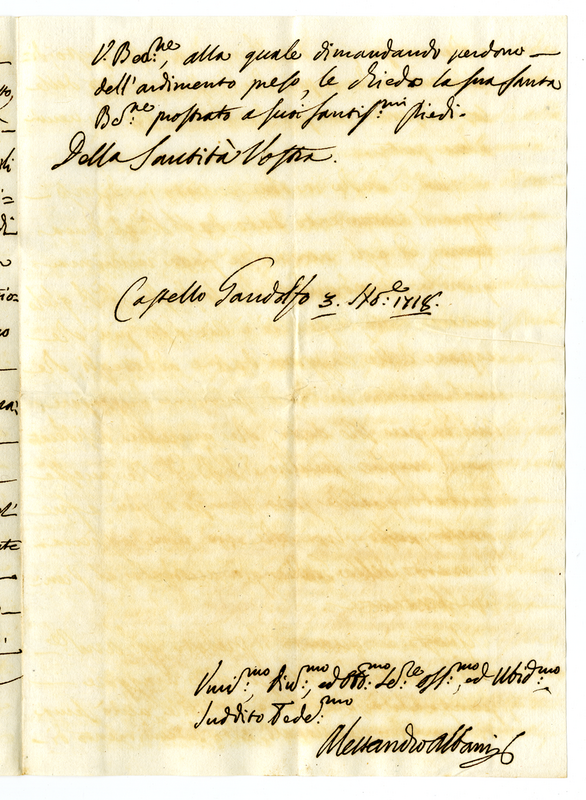 V. Bed:ne, alla quale dimandando perdono —
dell'ardimento preso, le chiedo la sua santa
Bed:ne prostrato a suoi santiss:mi Piedi.
Della Santità Vostra.
Castello Gandolfo 3. 1718.
Umil:mo, Div:mo, ed Obb:mo, ed Ubid:mo
Suddito Fede:mo
Alessandro Albani